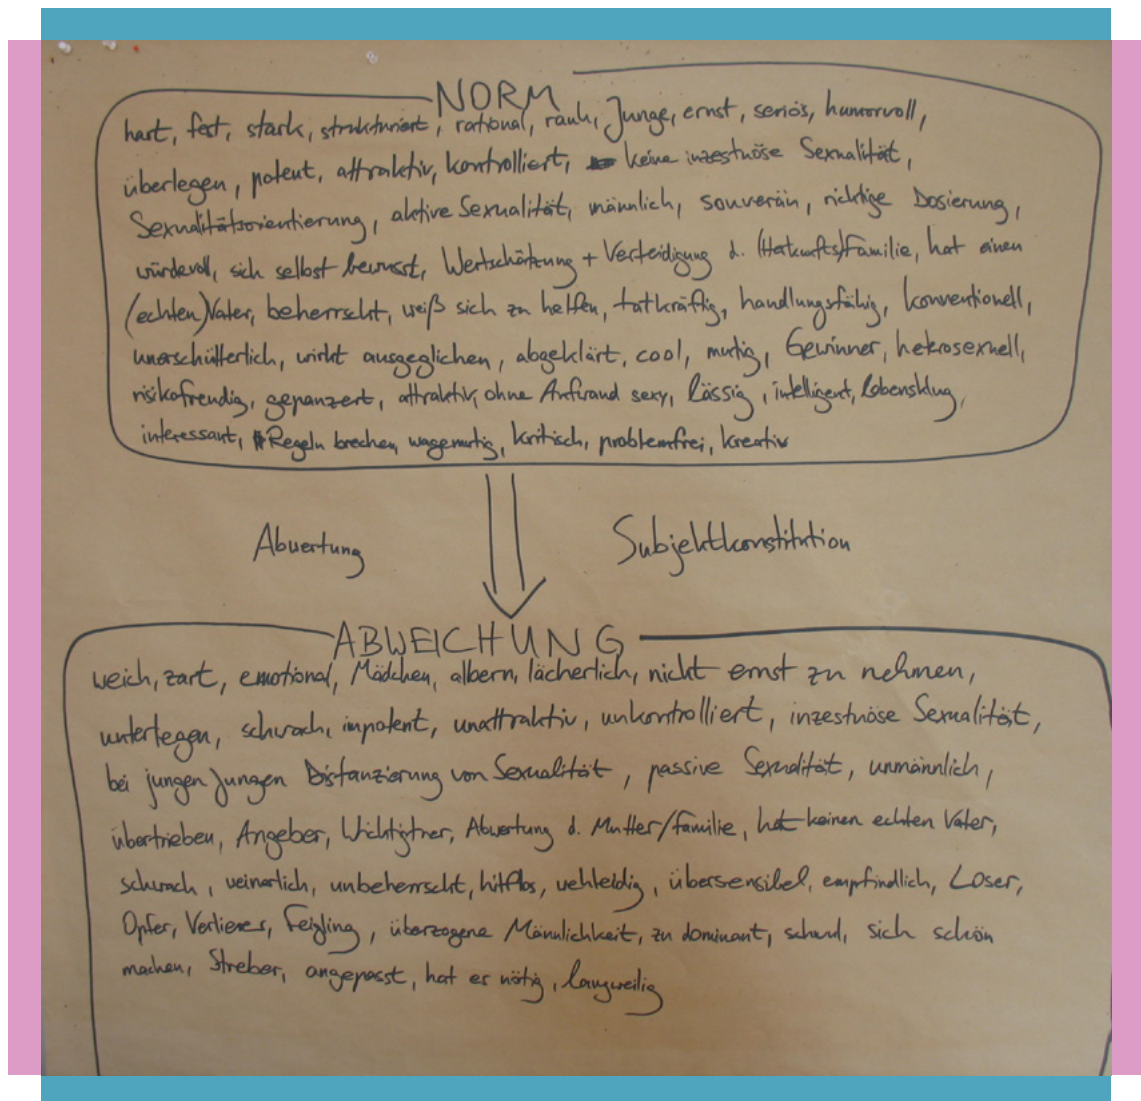 NORM
hart, fest, stark, strukturiert, rational, rauh, Junge, ernst, seriös, humorvoll,
überlegen, potent, attraktiv, kontrolliert, keine inzestuöse Sexualität,
Sexualitätsorientierung, aktive Sexualität, männlich, souverän, richtige Dosierung,
würdevoll, sich selbst bewusst, Wertschätzung + Verteidigung d. (Herkunfts)familie, hat einen
(echten) Vater, beherrscht, weiß sich zu helfen, tatkräftig, handlungsfähig, konventionell,
unerschütterlich, wirkt ausgeglichen, abgeklärt, cool, mutig, Gewinner, heterosexuell,
risikofreudig, gepanzert, attraktiv, ohne Aufwand sexy, lässig, intelligent, lebensklug,
interessant, Regeln brechen, wagemutig, kritisch, problemfrei, kreativ
Abwertung
Subjektkonstitution
ABWEICHUNG
weich, zart, emotional, Mädchen, albern, lächerlich, nicht ernst zu nehmen,
unterlegen, schwach, impotent, unattraktiv, unkontrolliert, inzestuöse Sexualität,
bei jungen Jungen Distanzierung von Sexualität, passive Sexualität, unmännlich,
übertrieben, Angeber, Wichtigtuer, Abwertung d. Mutter/Familie, hat keinen echten Vater,
schwach, weinerlich, unbeherrscht, hilflos, wehleidig, übersensibel, empfindlich, Loser,
Opfer, Verlierer, Feigling, überzogene Männlichkeit, zu dominant, schwul, sich schön
machen, Streber, angepasst, hat er nötig, langweilig